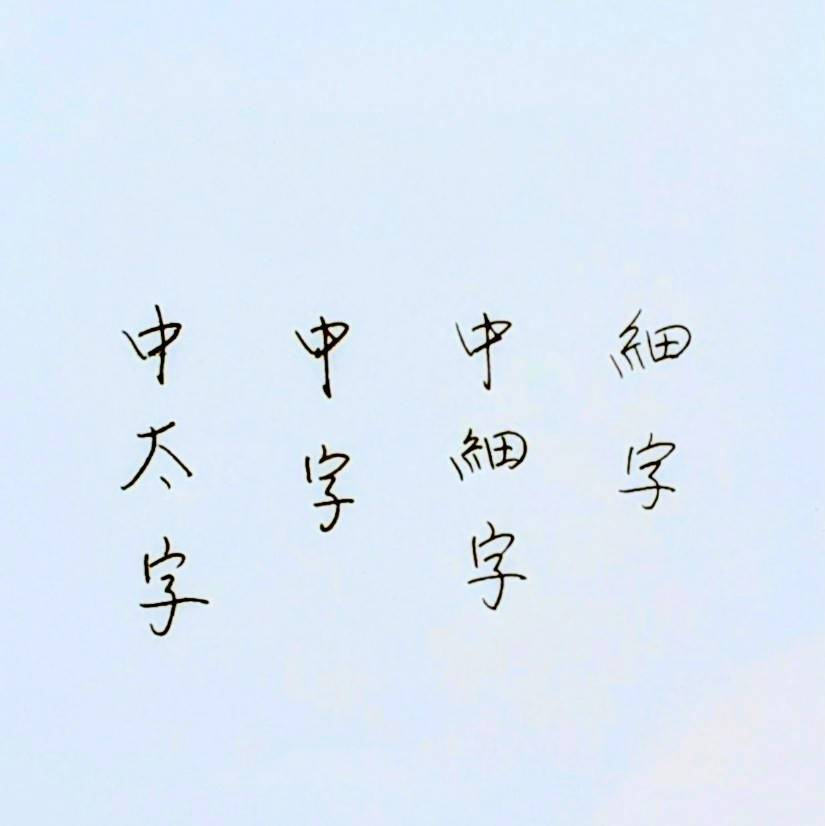 細字
中細字
中字
中太字